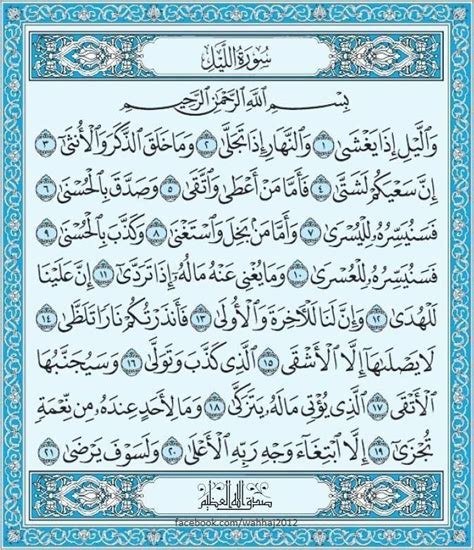 سُورَةُ اللَّيْلِ
بِسْمِ اللَّهِ الرَّحْمَٰنِ الرَّحِيمِ
وَالَّيْلِ إِذَا يَغْشَىٰ ١ وَالنَّهَارِ إِذَا تَجَلَّىٰ ٢ وَمَا خَلَقَ الذَّكَرَ وَالْأُنثَىٰ ٣
إِنَّ سَعْيَكُمْ لَشَتَّىٰ ٤ فَأَمَّا مَنْ أَعْطَىٰ وَاتَّقَىٰ ٥ وَصَدَّقَ بِالْحُسْنَىٰ ٦
فَسَنُيَسِّرُهُ لِلْيُسْرَىٰ ٧ وَأَمَّا مَنْ بَخِلَ وَاسْتَغْنَىٰ ٨ وَكَذَّبَ بِالْحُسْنَىٰ ٩
فَسَنُيَسِّرُهُ لِلْعُسْرَىٰ ١٠ وَمَا يُغْنِي عَنْهُ مَالُهُ إِذَا تَرَدَّىٰ ١١ إِنَّ عَلَيْنَا
لَلْهُدَىٰ ١٢ وَإِنَّ لَنَا لَلْآخِرَةَ وَالْأُولَىٰ ١٣ فَأَنذَرْتُكُمْ نَارًا تَلَظَّىٰ ١٤
لَا يَصْلَاهَا إِلَّا الْأَشْقَى ١٥ الَّذِي كَذَّبَ وَتَوَلَّىٰ ١٦ وَسَيُجَنَّبُهَا
الْأَتْقَى ١٧ الَّذِي يُؤْتِي مَالَهُ يَتَزَكَّىٰ ١٨ وَمَا لِأَحَدٍ عِندَهُ مِن نِّعْمَةٍ
تُجْزَىٰ ١٩ إِلَّا ابْتِغَاءَ وَجْهِ رَبِّهِ الْأَعْلَىٰ ٢٠ وَلَسَوْفَ يَرْضَىٰ ٢١
صدق الله العظيم
facebook.com/wahhaj2012